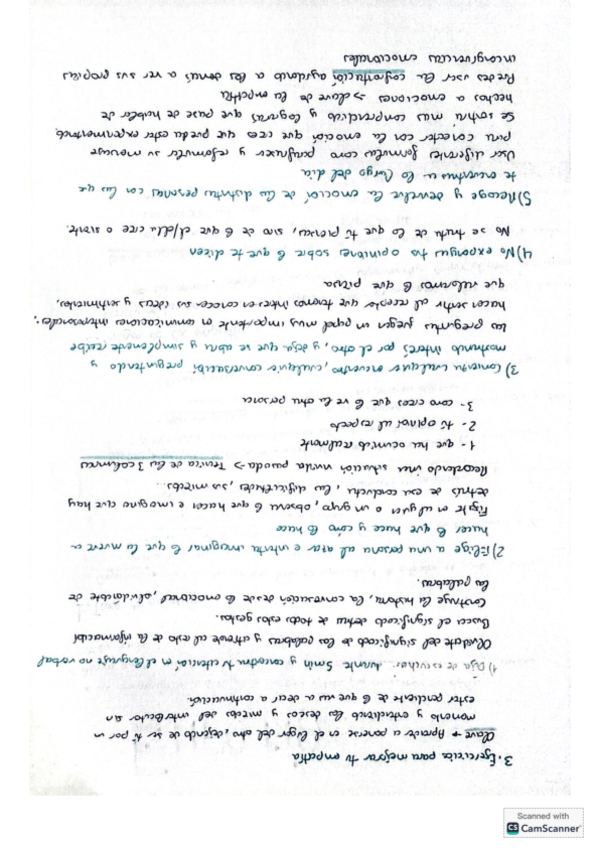 3. Ejercicios para mejorar tu empatía
Clave → Aprender a ponerse en el lugar del otro, dejando de ser tú por un
momento y entendiendo los deseos y miedos del interlocutor sin
estar pendiente de lo que vas a decir a continuación.
1) Deja de escuchar durante 5min y concentra tu atención en el lenguaje no verbal
Olvídate del significado de las palabras y atiende al resto de la información
Busca el significado detrás de todos estos gestos.
Construye la historia, la conversación desde lo emocional, olvidándote de
las palabras.
2) Elige a una persona al azar e intenta imaginar lo que la mueve a
hacer lo que hace y cómo lo hace
Fíjate en alguien o un grupo, observa lo que hacen e imagina que hay
detrás de esa conducta, las dificultades, sus miedos...
Recordando una situación vivida pasada → Técnica de las 3 columnas
1- que ha ocurrido realmente
2- tú opinas al respecto
3- como crees que lo ve la otra persona
3) Comienza cualquier encuentro, cualquier conversación preguntando y
mostrando interés por el otro, y deja que se abra y simplemente recibe
Las preguntas juegan un papel muy importante en comunicaciones interpersonales:
hacen sentir al receptor que tenemos interés en conocer sus ideas y sentimientos,
que valoramos lo que piensa
4) No expongas tus opiniones sobre lo que te dicen
No se trata de lo que tú piensas, sino de lo que el/ella cree o siente.
5) Recoge y devuelve la emoción de las distintas personas con las que
te encuentras a lo largo del día
Usar diferentes fórmulas como parafrasear y reformular su mensaje
para conectar con la emoción que crees que pueda estar experimentando
Se sentirá más comprendido y lograrás que pase de hablar de
hechos a emociones → clave de la empatía
Puedes usar la confrontación ayudando a los demás a ver sus propias
incongruencias emocionales
Scanned with
CS CamScanner